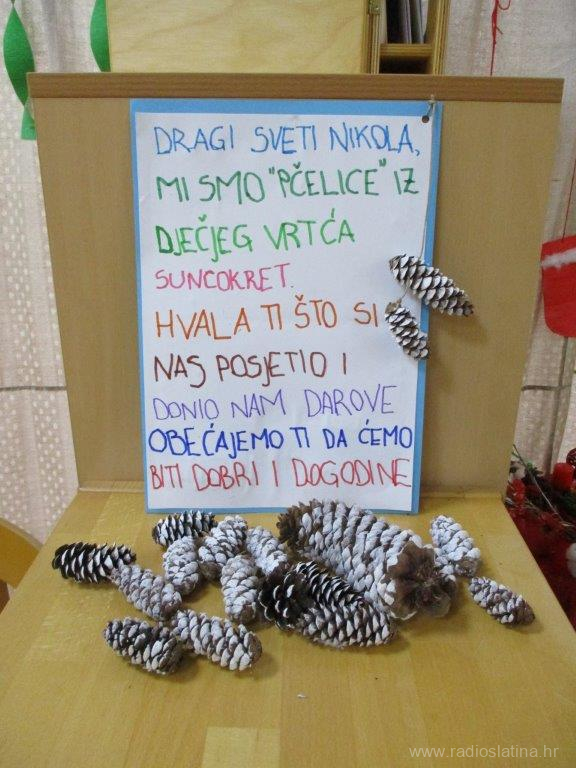 DRAGI SVETI NIKOLA,
MI SMO "PČELICE" IZ
DJEČJEG VRTĆA
SUNCOKRET.
HVALA TI ŠTO SI
NAS POSJETIO I
DONIO NAM DAROVE
OBEĆAJEMO TI DA ĆEMO
BITI DOBRI I DOGODINE
www.radioslatina.hr